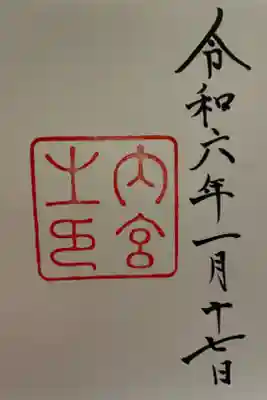 令和六年一月十七日
内宮
之印